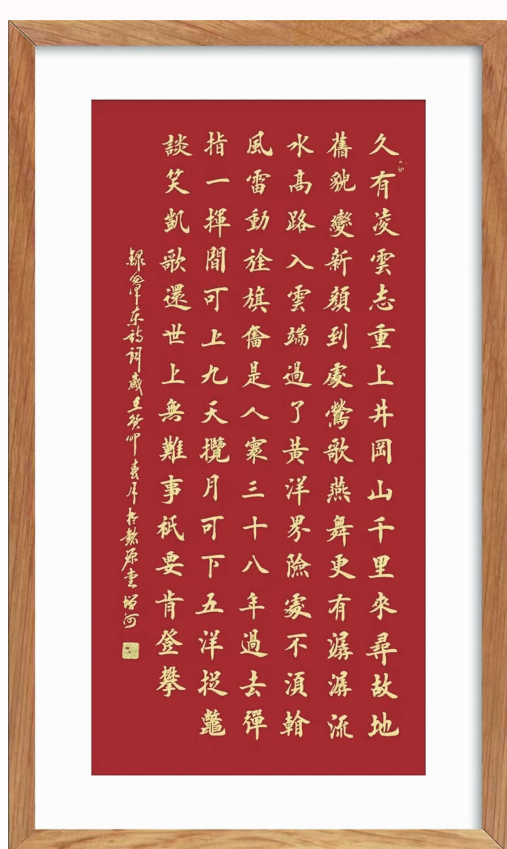 久有凌雲志重上井岡山千里來尋故地
舊貌變新顏到處鶯歌燕舞更有潺潺流
水髙路入雲端過了黃洋界險處不須看
風雷動旌旗奮是人寰三十八年過去彈
指一揮間可上九天攬月可下五洋捉鼈
談笑凱歌還世上無難事祇要肯登攀
録毛澤东詩詞歲在癸卯春月於懿源堂增河